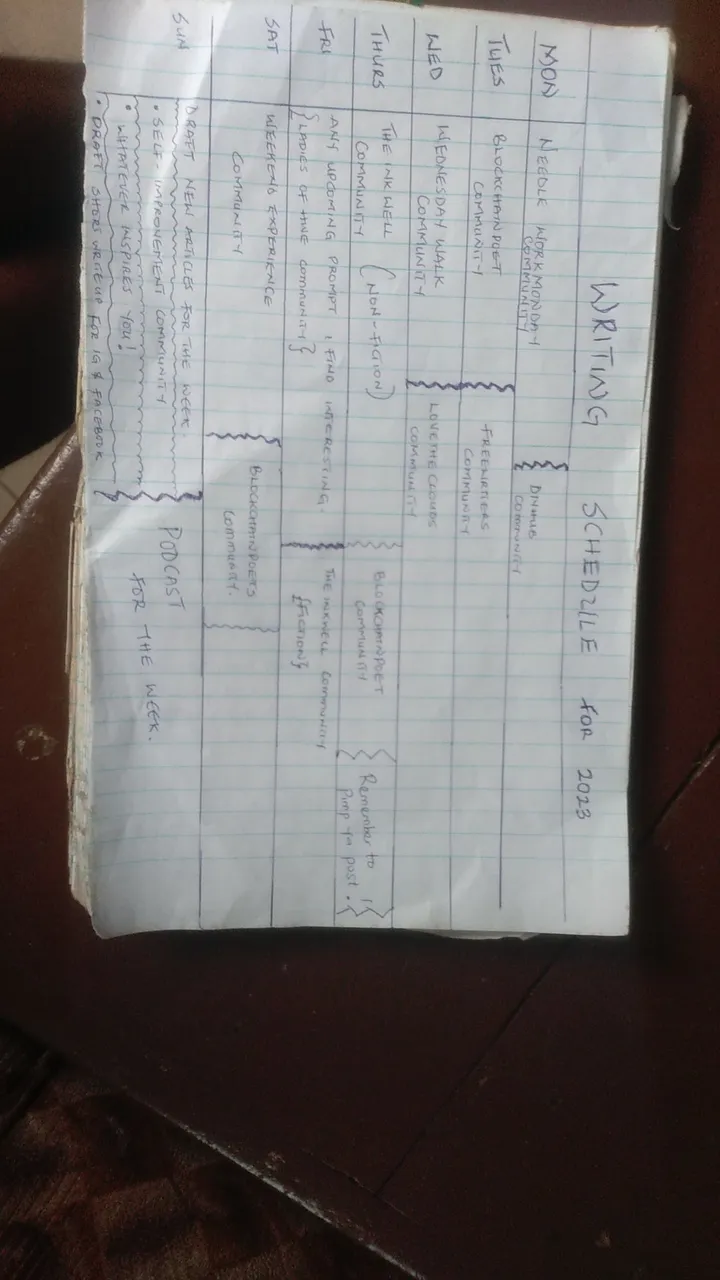 WRITING SCHEDULE FOR 2023
MON
NEEDLE WORKMONDAY
COMMUNITY
DIYHUB
COMMUNITY
TUES
BLOCKCHAINPOET
COMMUNITY
FREEWRITERS
COMMUNITY
WED
WEDNESDAY WALK
COMMUNITY
LOVETHECLOUDS
COMMUNITY
THURS
THE INKWELL (NON-FICTION)
COMMUNITY
BLOCKCHAINPOET
COMMUNITY
Remember to
pimp ya post!
FRI
ANY UPCOMING PROMPT I FIND INTERESTING.
{LADIES OF HIVE COMMUNITY}
THE INKWELL COMMUNITY
{FICTION}
SAT
WEEKEND EXPERIENCE
COMMUNITY
BLOCKCHAINPOETS
COMMUNITY.
SUN
DRAFT NEW ARTICLES FOR THE WEEK.
• SELF IMPROVEMENT COMMUNITY
• WHATEVER INSPIRES YOU!
• DRAFT SHORT WRITEUP FOR IG & FACEBOOK
PODCAST
FOR THE WEEK.